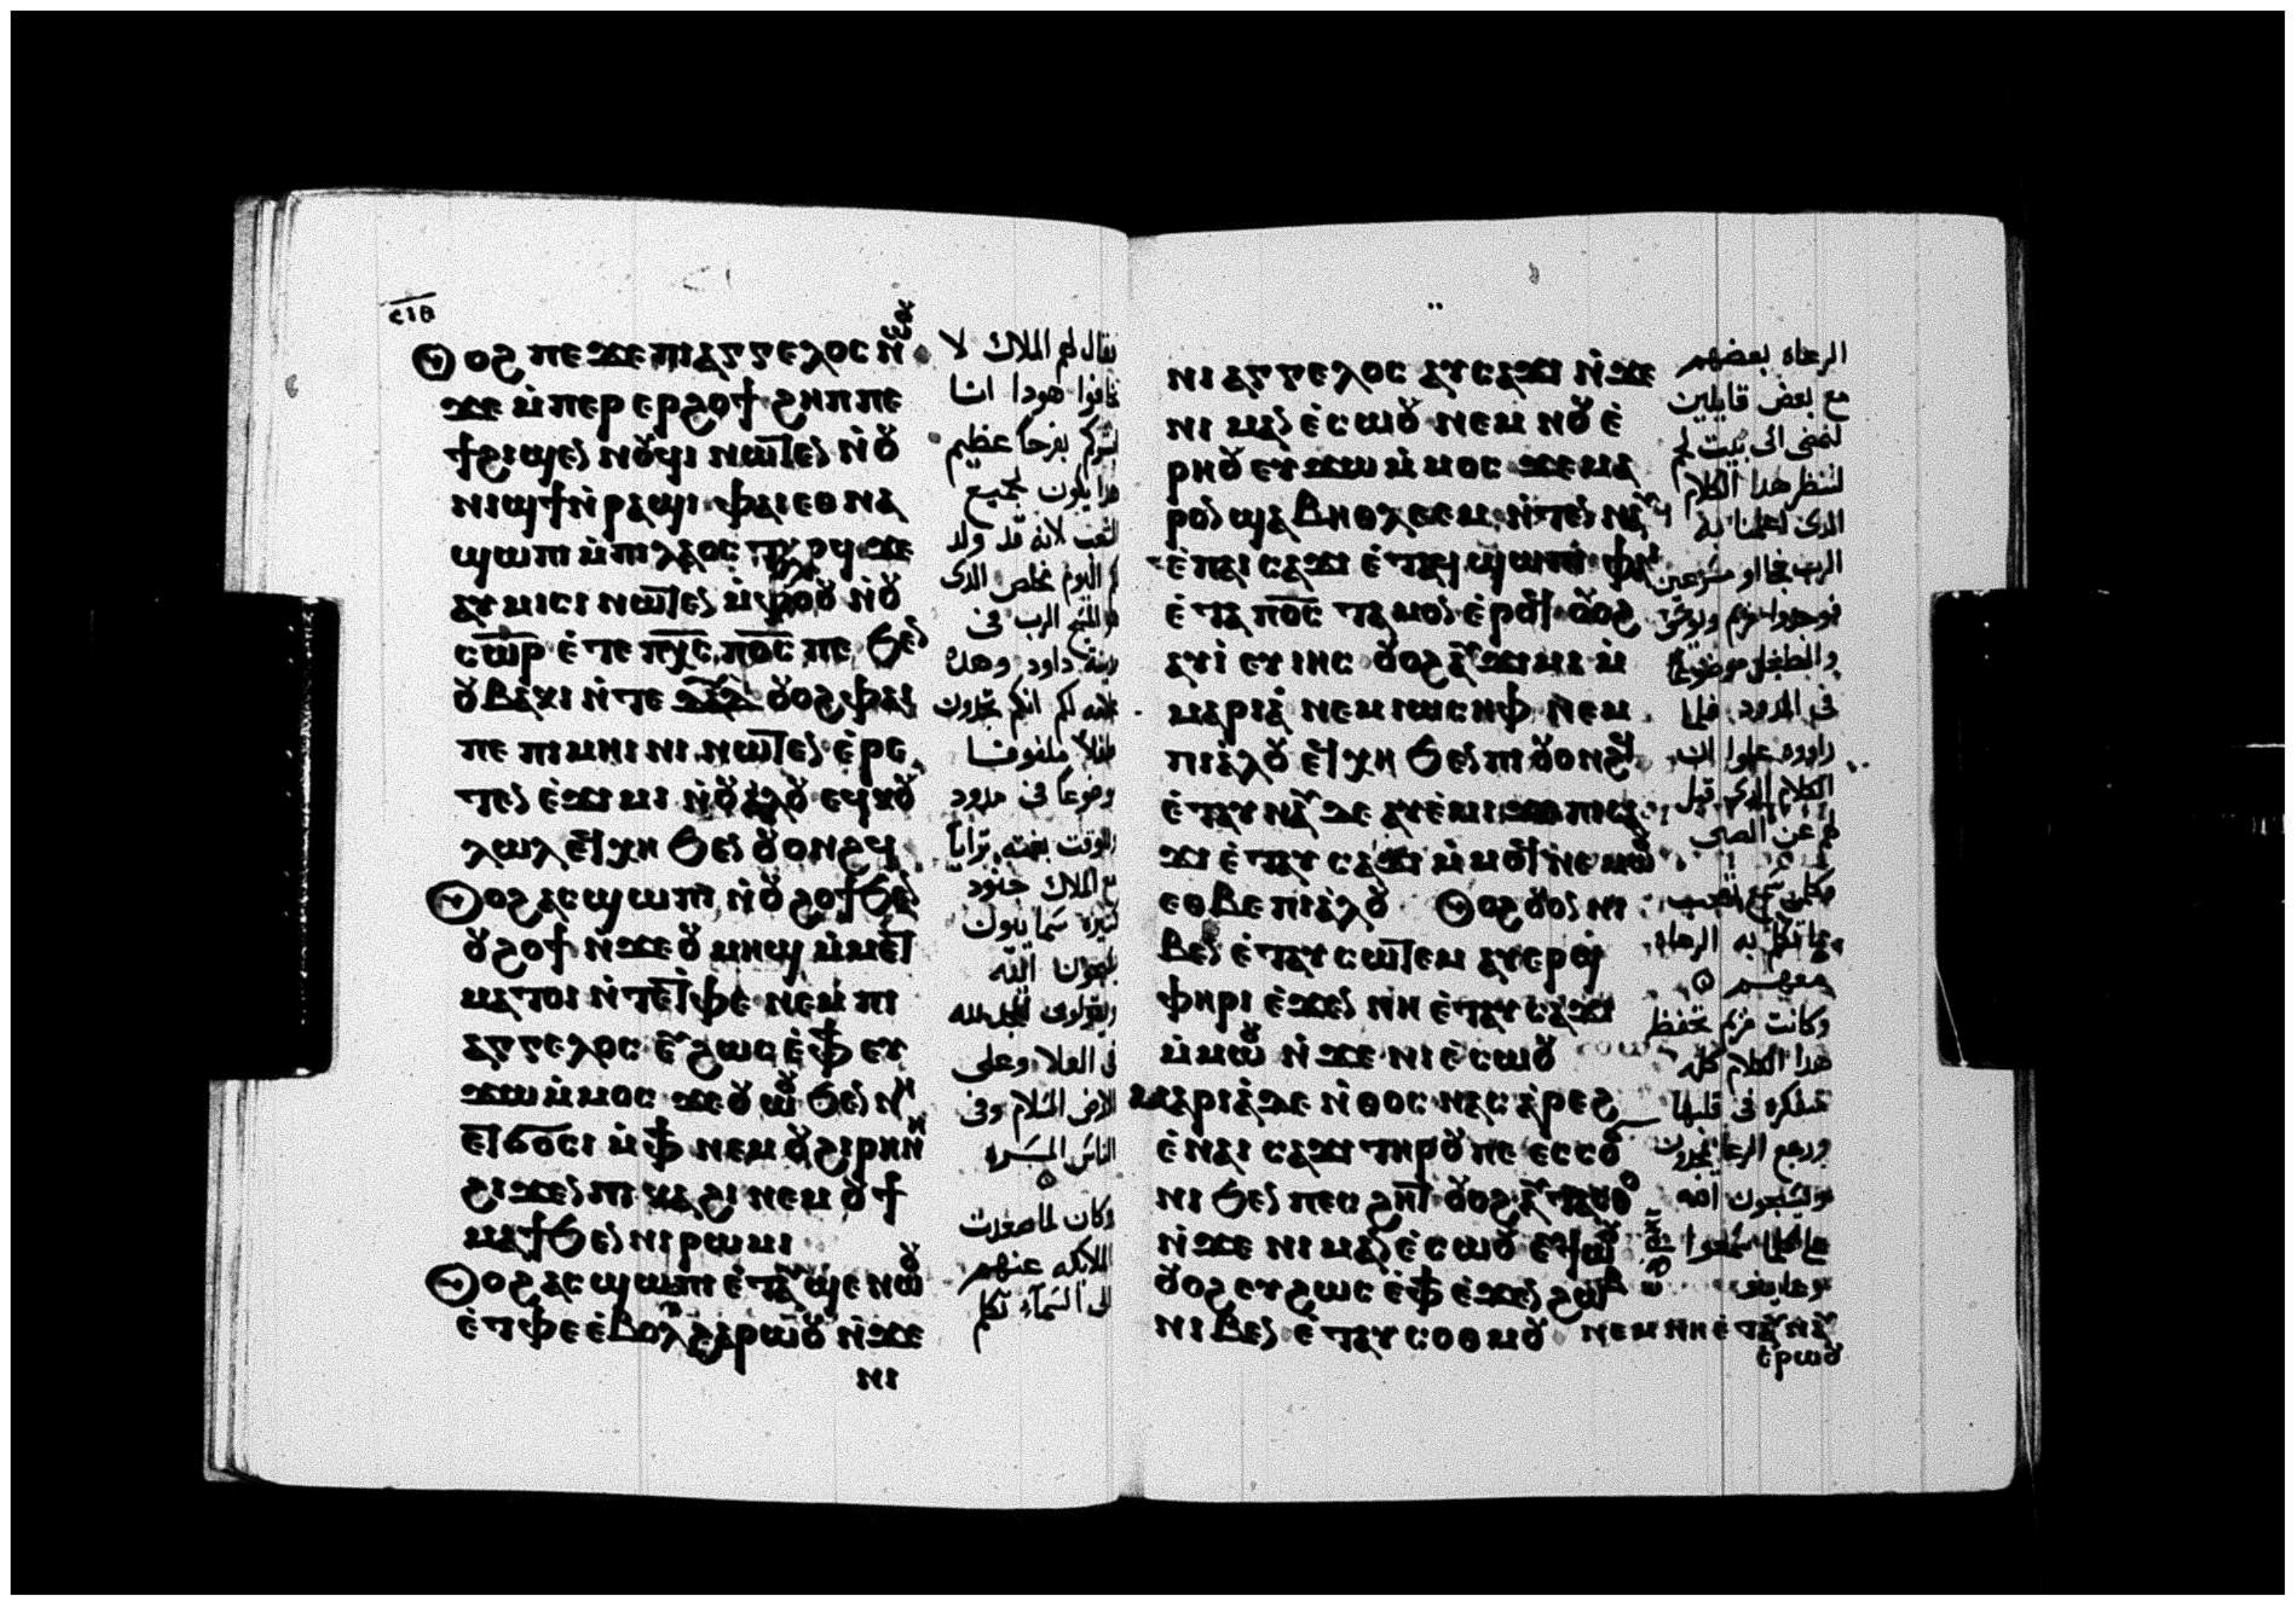 ⲥⲓⲑ
ⲟϩ ⲡⲉϫⲉ ⲡⲓⲁⲅⲅⲉⲗⲟⲥ ⲛⲱⲟⲩ
ϫⲉ ⲙ̀ⲡⲉⲣ ⲉⲣϩⲟϯ ϩⲏⲡⲡⲉ
ϯϩⲓϣⲉⲛ ⲛⲟⲩϥⲓ ⲛⲱⲧⲉⲛ ⲛ̀ⲟⲩ
ⲛⲓϣϯ ⲛ̀ⲣⲁϣⲓ ⲫⲁⲓ ⲉⲑⲛⲁ
ϣⲱⲡⲓ ⲙ̀ⲡⲓⲗⲁⲟⲥ ⲧⲏⲣϥ ϫⲉ
ⲁⲩⲙⲓⲥⲓ ⲛⲱⲧⲉⲛ ⲙ̀ⲫⲟⲟⲩ ⲛ̀ⲟⲩ
ⲥⲱⲣ ⲉ̀ⲧⲉ ⲡⲭⲥ ⲡⲟⲥ ⲡⲉ ϧⲉⲛ
ⲟⲩⲃⲁⲕⲓ ⲛ̀ⲧⲉ ⲇⲁⲇ ⲟⲩⲟϩ ⲫⲁⲓ
ⲡⲉ ⲡⲓⲙⲏⲓⲛⲓ ⲛⲱⲧⲉⲛ ⲉ̀ⲣⲉ
ⲧⲉⲛ ⲉ̀ϫⲓⲙⲓ ⲛ̀ⲟⲩⲁ̀ⲗⲟⲩ ⲉϥⲕⲟⲩ
ⲗⲱⲗ ⲉϥⲭⲏ ϧⲉⲛ ⲟⲩⲟⲛϩϥ
ⲟϩ ⲁⲥϣⲱⲡⲓ ⲛ̀ⲟⲩϩⲟϯ ϧⲉⲛ
ⲟⲩϩⲟϯ ⲛ̀ϫⲉ ⲟⲩⲙⲏϣ ⲙ̀ⲙⲉⲧ
ⲙⲁⲧⲟⲓ ⲛ̀ⲧⲉⲧⲫⲉ ⲛⲉⲙ ⲡⲓ
ⲁⲅⲅⲉⲗⲟⲥ ⲉⲩϩⲱⲥ ⲉ̀ⲫϯ ⲉⲩ
ϫⲱ ⲙ̀ⲙⲟⲥ ϫⲉ ⲟⲩⲱⲟⲩ ϧⲉⲛ ⲛⲏ
ⲉⲧϭⲟⲥⲓ ⲙ̀ⲫϯ ⲛⲉⲙ ⲟⲩϩⲓⲣⲏⲛⲏ
ϩⲓϫⲉⲛ ⲡⲓⲕⲁϩⲓ ⲛⲉⲙ ⲟⲩϯ
ⲙⲁϯ ϧⲉⲛ ⲛⲓⲣⲱⲙⲓ
ⲟϩ ⲁⲥϣⲱⲡⲓ ⲉ̀ⲧⲁⲩϣⲉ ⲛⲱⲟⲩ
ⲉ̀ⲧⲫⲉ ⲉ̀ⲃⲟⲗ ϩⲁⲣⲱⲟⲩ ⲛ̀ϫⲉ
ⲛⲓ
فقال لهم الملاك لا
تخافوا هودا انا
ابشركم بفرحا عظيم
هدا يكون لجميع
الشعب لانه قد ولد
لكم اليوم مخلص الدى
هو المسيح الرب فى
مدينة داود وهده
علامه لكم انكم تجدون
طفلا ملفوفا
وضوعا فى مدود
الوقت بغته ترايا
مع الملاك جنود
كثيرة سمايون
يسبحون الله
ويقولون المجد لله
فى العلا وعلى
الارض السلام وفى
الناس المسره
وكان لما صعدت
الملايكه عنهم
الى السماء تكلم
ⲛⲓⲁⲅⲅⲉⲗⲟⲥ ⲁⲩⲥⲁϫⲓ ⲛ̀ϫⲉ
ⲛⲓⲙⲁⲛⲉ̀ⲥⲱⲟⲩ ⲛⲉⲙ ⲛⲟⲩⲉ̀
ⲣⲏⲟⲩ ⲉⲩϫⲱ ⲙ̀ⲙⲟⲥ ϫⲉ ⲙⲁ
ⲣⲟⲛ ϣⲁ ⲃⲏⲑⲗⲉⲉⲙ ⲛ̀ⲧⲉⲛ ⲛⲁⲩ
ⲉ̀ⲡⲁⲓ ⲥⲁϫⲓ ⲉ̀ⲧⲁϥϣⲱⲡⲓ ⲫⲏ
ⲉ̀ⲧⲁ ⲡⲟⲥ ⲧⲁⲙⲟⲛ ⲉ̀ⲣⲟϥ ⲟⲩⲟϩ
ⲁⲩⲓ̀ ⲉⲩⲓⲏⲥ ⲟⲩⲟϩ ⲁⲩϫⲓⲙⲓ ⲙ̀
ⲙⲁⲣⲓⲁ̀ ⲛⲉⲙ ⲓⲱⲥⲏⲫ ⲛⲉⲙ
ⲡⲓⲁ̀ⲗⲟⲩ ⲉϥⲭⲏ ϧⲉⲛ ⲡⲓⲟⲩⲟⲛϩϥ
ⲉ̀ⲧⲁⲩⲛⲁⲩ ⲇⲉ ⲁⲩⲉ̀ⲙⲓ ϫⲉ ⲡⲓⲥⲁ
ϫⲓ ⲉ̀ⲧⲁⲩⲥⲁϫⲓ ⲙ̀ⲙⲟϥ ⲛⲉⲙⲱⲟⲩ
ⲉⲑⲃⲉ ⲡⲓⲁ̀ⲗⲟⲩ ⲟϩ ⲟⲩⲟⲛ ⲛⲓ
ⲃⲉⲛ ⲉ̀ⲧⲁⲩⲥⲱⲧⲉⲙ ⲁⲩⲉⲣϣ̀
ⲫⲏⲣⲓ ⲉ̀ϫⲉⲛ ⲛⲏ ⲉ̀ⲧⲁⲩⲥⲁϫⲓ
ⲙ̀ⲙⲱⲟⲩ ⲛ̀ϫⲉ ⲛⲓⲉ̀ⲥⲱⲟⲩ
ⲙⲁⲣⲓⲁ̀ ⲇⲉ ⲛ̀ⲑⲟⲥ ⲛⲁⲥⲁ̀ⲣⲉϩ
ⲉ̀ⲛⲁⲓ ⲥⲁϫⲓ ⲧⲏⲣⲟⲩ ⲡⲉ ⲉⲥⲥⲟ
ⲛⲓ ϧⲉⲛ ⲡⲉⲥϩⲏⲧ ⲟⲩⲟϩ ⲁⲩⲧⲁⲥⲑⲟ
ⲛ̀ϫⲉ ⲛⲓⲙⲁⲛⲉ̀ⲥⲱⲟⲩ ⲉⲩϯⲱⲟⲩ
ⲟⲩⲟϩ ⲉⲩϩⲱⲥ ⲉ̀ⲫϯ ⲉ̀ϫⲉⲛ ϩⲱⲃ
ⲛⲓⲃⲉⲛ ⲉ̀ⲧⲁⲩⲥⲟⲑⲙⲟⲩ ⲛⲉⲙ ⲛⲏ ⲉ̀ⲧⲁⲩⲛⲁⲩ
ⲉ̀ⲣⲱⲟⲩ
الرعاه بعضهم
مع بعض قايلين
لنمضى الى بيت لحم
لننظر هدا الكلام
الدى اعلمنا به
الرب فجااو مسرعين
فوجدوا مريم ويوسف
والطفل موضوعا
فى المدود فلما
راووه علموا ان
الكلام الدى قيل
لهم عن الصبى
وكلمن سمع تعجب
مما تكلم به الرعاه
معهم
وكانت مريم تحفظ
هدا الكلام كله
متفكره فى قلبها
ورجع الرعاه يمجدون
ويسبحون الله
على كلما سمعوا
وعاينو